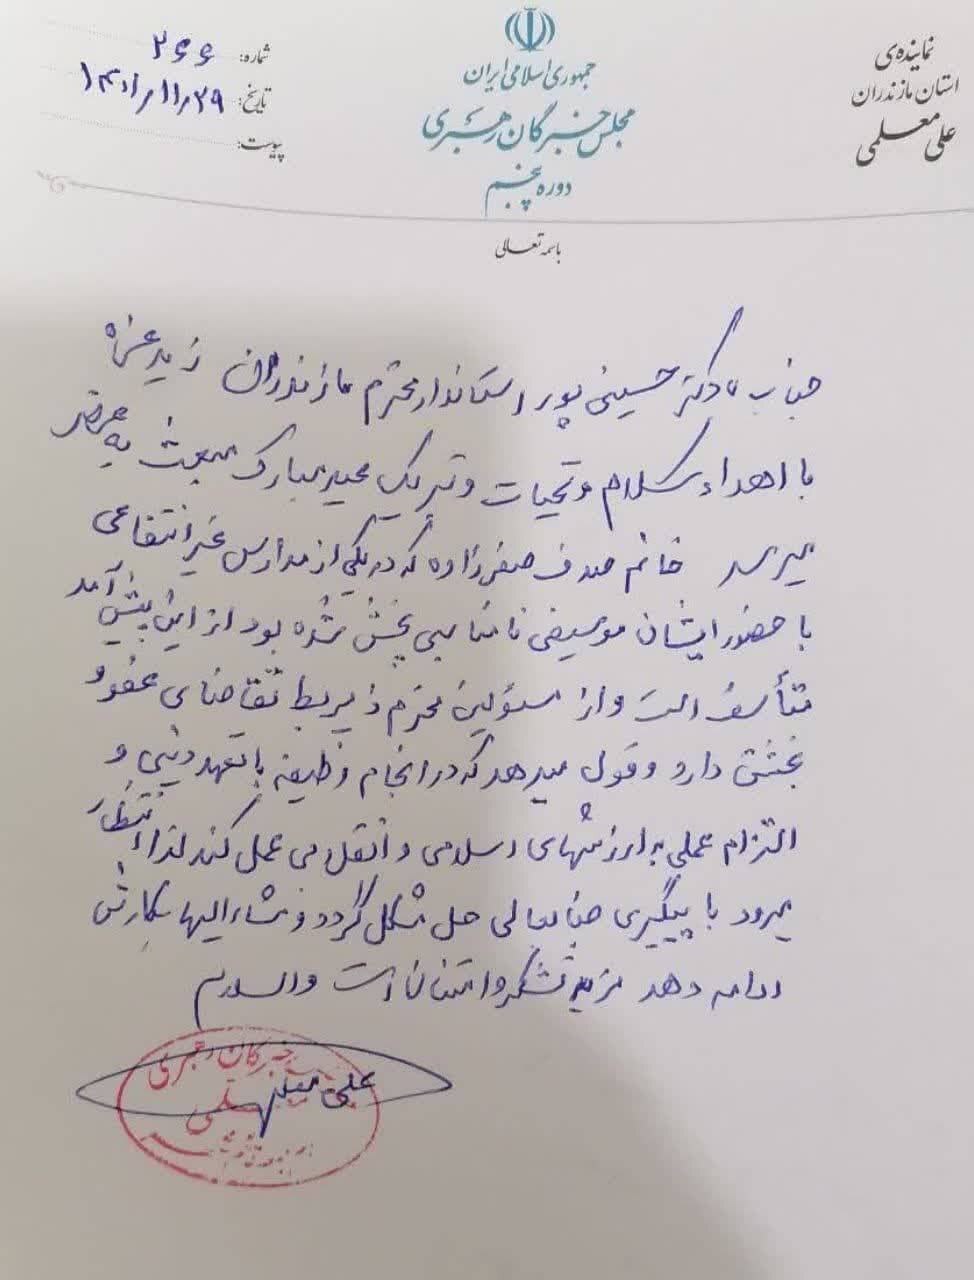 جمهوری اسلامی ایران
مجلس خبرگان رهبری
دوره پنجم
نماینده‌ی
استان مازندران
علی معلمی
شماره: ۲۶۶
تاریخ: ۱۴۰۱/۱۱/۲۹
پیوست:
باسمه تعالی
جناب دکتر حسینی پور استاندار محترم مازندران زید عزه
با اهداء سلام و تحیات و تبریک عید مبارک مبعث به عرض
میرسد خانم صدف صفرزاده که در یکی از مدارس غیر انتفاعی
با حضور ایشان موسیقی نامناسبی پخش شده بود از این پیش آمد
متأسف است و از مسئولین محترم ذیربط تقاضای عفو و
بخشش دارد و قول میدهد که در انجام وظیفه با تعهد دینی و
التزام عملی به ارزشهای اسلامی و انقلامی عمل کند لذا انتظار
میرود با پیگیری جنابعالی حل مشکل گردد و مشارالیها بکارش
ادامه دهد مزید تشکر و امتنان است والسلام
علی معلمی
خبرگان رهبری